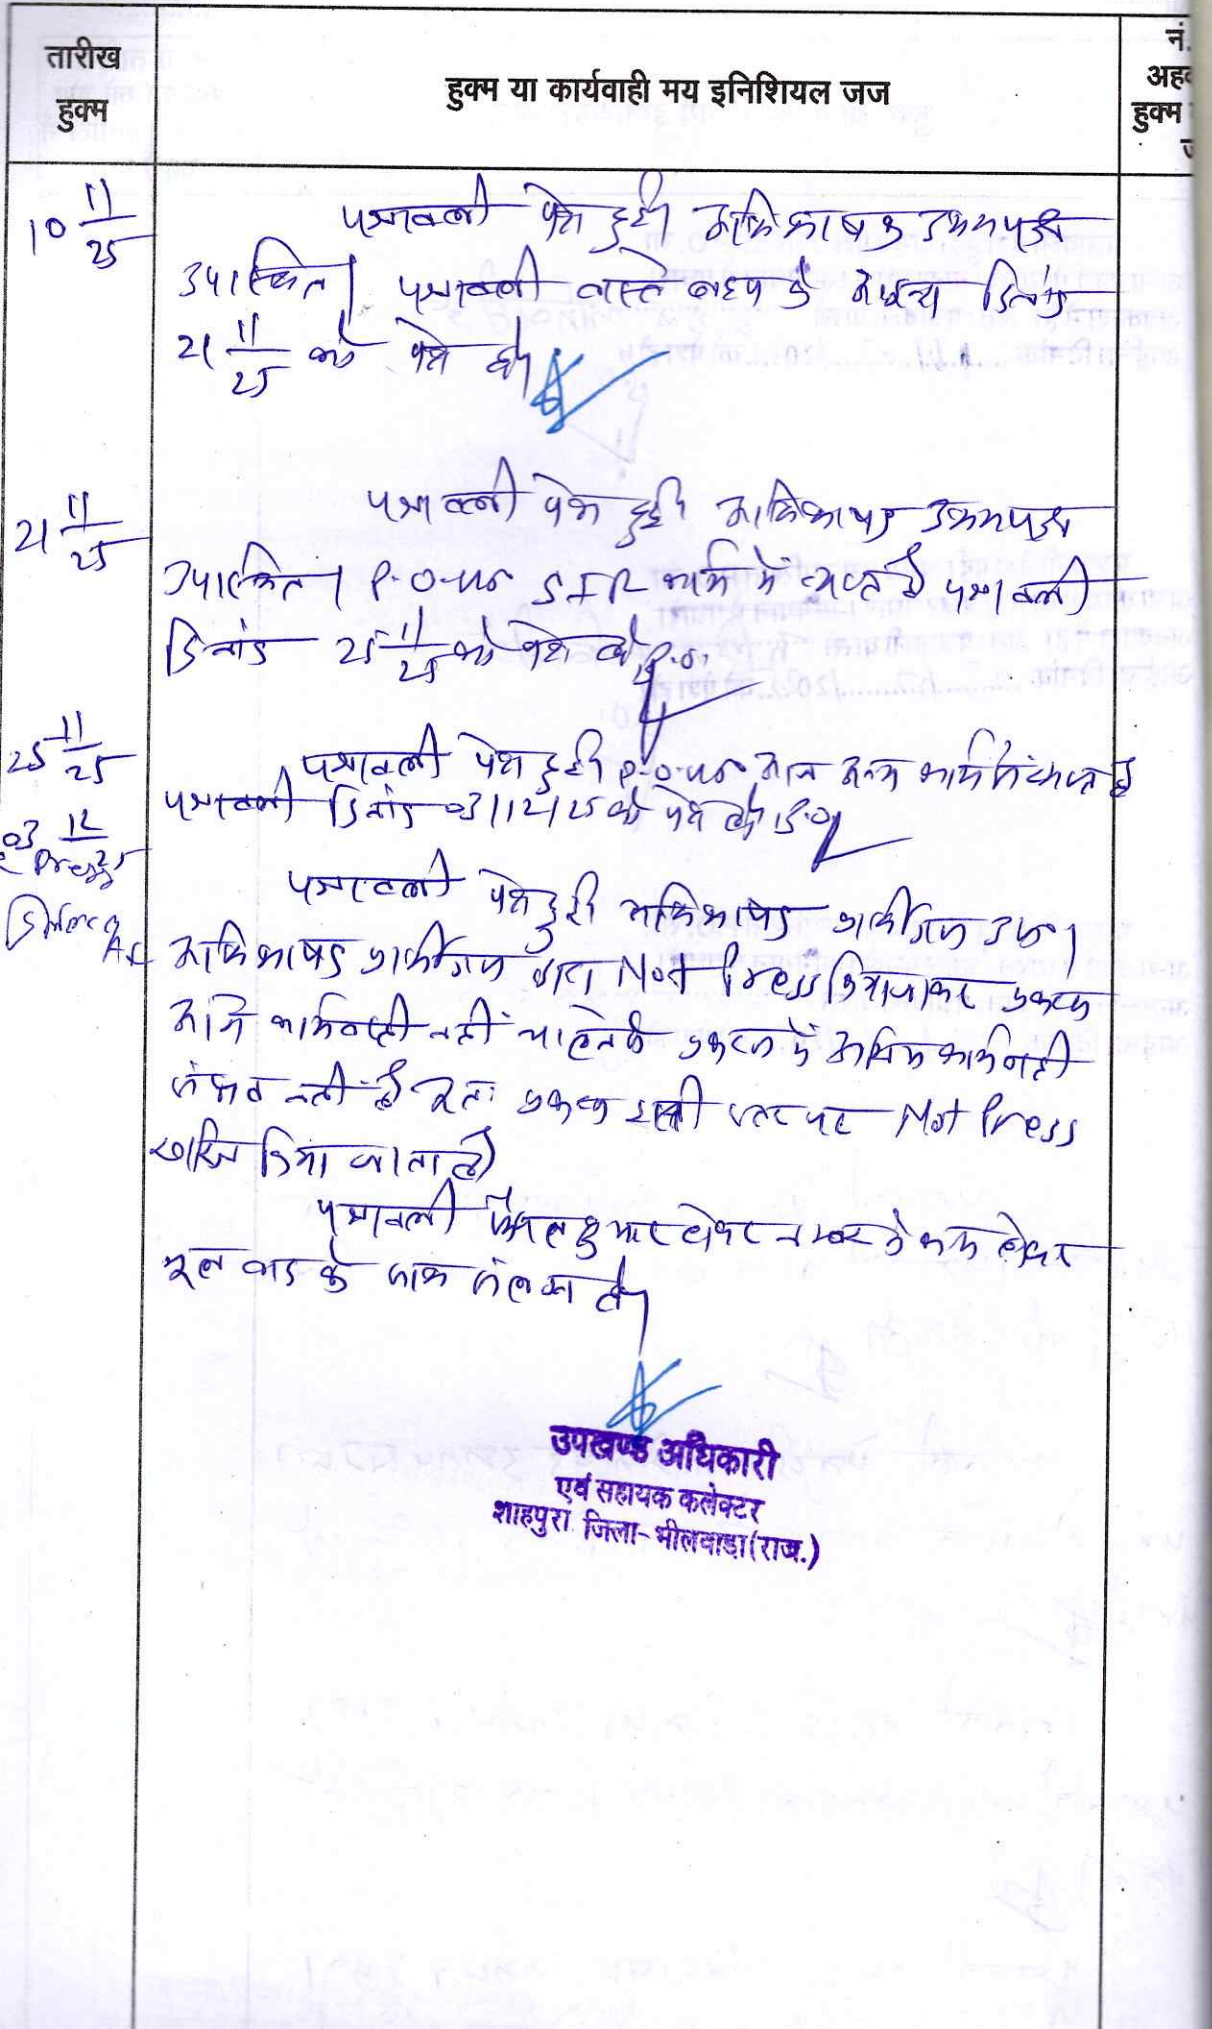 तारीख
हुक्म
हुक्म या कार्यवाही मय इनिशियल जज
नं.
हुक्म
10 11/25
पत्रावली पेश हुई। अभिभाषक उभयपक्ष
उपस्थित। पत्रावली वास्ते बहस के दिनांक
21 11/25 को पेश हो।
21 11/25
पत्रावली पेश हुई। अभिभाषक उभयपक्ष
उपस्थित। P.O. सा० SIR कार्य में व्यस्त है पत्रावली
दिनांक 25 11/25 को पेश हो।
25 11/25
पत्रावली पेश हुई। P.O. सा० अन्य कार्य में व्यस्त है
पत्रावली दिनांक 03/12/25 को पेश हो।
03 12/25
Press
पत्रावली पेश हुई। अभिभाषक प्रार्थीगण उप०।
अभिभाषक प्रार्थीगण द्वारा Not Press किया जाकर प्रकरण
में कार्यवाही नहीं चाहने से प्रकरण में अग्रिम कार्यवाही
संभव नहीं है अतः प्रकरण इसी स्तर पर Not Press
खारिज किया जाता है।
पत्रावली फैसल शुमार होकर नम्बर से कम होकर
मूल वाद के साथ संलग्न हो।
उपखण्ड अधिकारी
एवं सहायक कलेक्टर
शाहपुरा जिला-भीलवाडा (राज.)